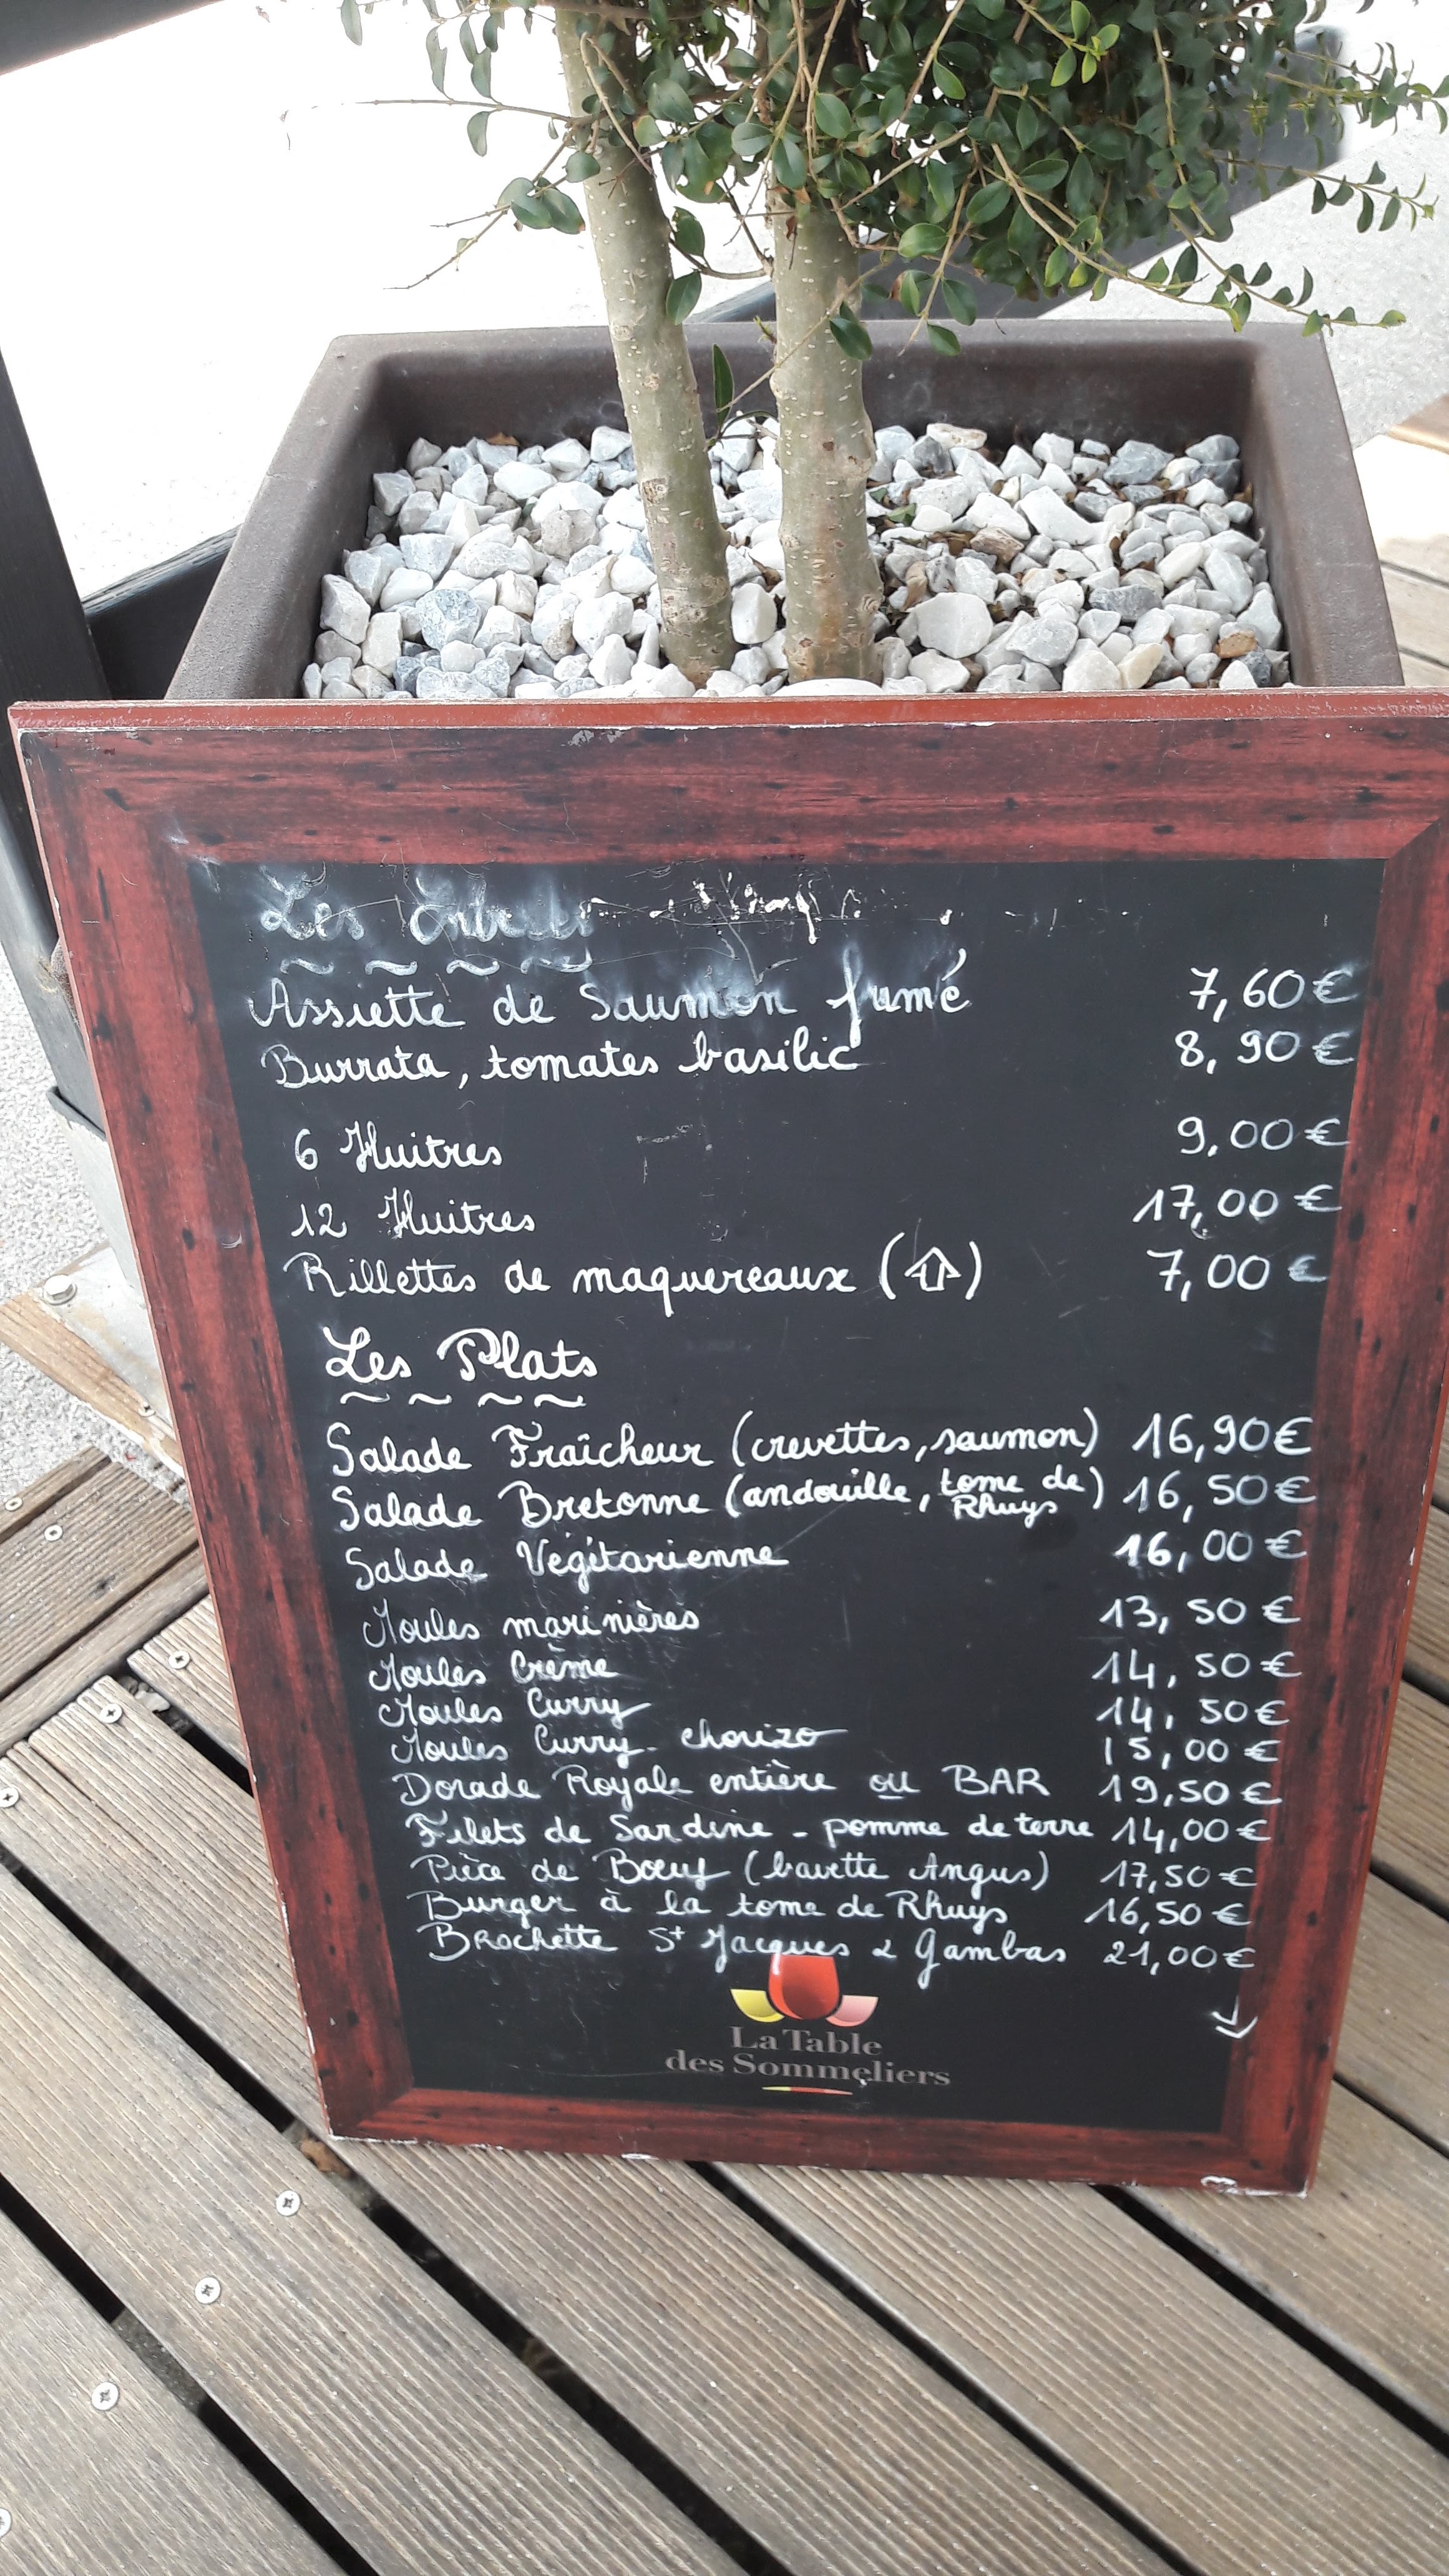 Les Entrées
Assiette de Saumon fumé 7,60€
Burrata, tomates basilic 8,90€
6 Huitres 9,00€
12 Huitres 17,00€
Rillettes de maquereaux (⇧) 7,00€
Les Plats
Salade Fraîcheur (crevettes, saumon) 16,90€
Salade Bretonne (andouille, tome de Rhuys) 16,50€
Salade Végétarienne 16,00€
Moules marinières 13,50€
Moules Crème 14,50€
Moules Curry 14,50€
Moules Curry-chorizo 15,00€
Dorade Royale entière ou BAR 19,50€
Filets de Sardine - pomme de terre 14,00€
Pièce de Boeuf (bavette Angus) 17,50€
Burger à la tome de Rhuys 16,50€
Brochette St Jacques & Gambas 21,00€
La Table
des Sommeliers